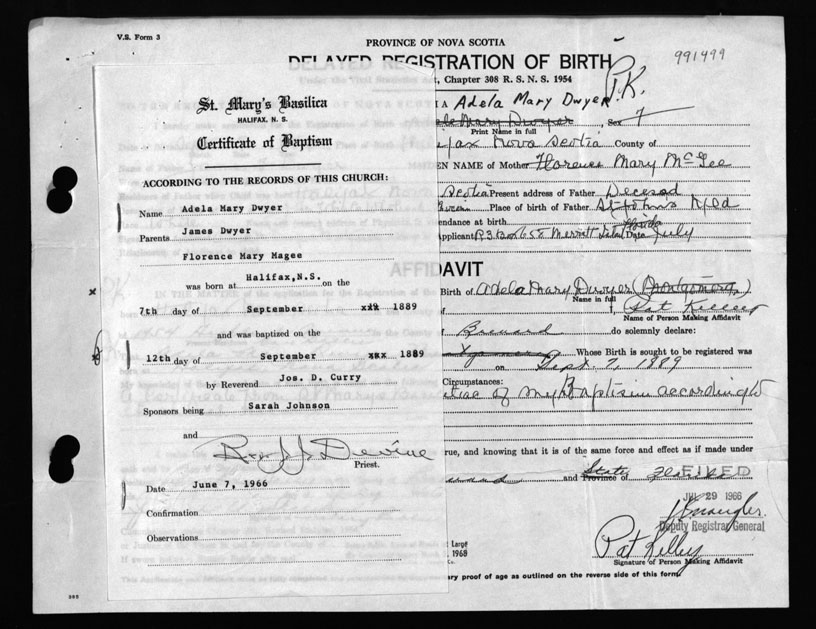 V.S. Form 3
PROVINCE OF NOVA SCOTIA
991499
DELAYED REGISTRATION OF BIRTH
, Chapter 308 R. S. N. S. 1954
P.K.
St. Mary's Basilica
HALIFAX, N. S.
Certificate of Baptism
ACCORDING TO THE RECORDS OF THIS CHURCH:
Name Adela Mary Dwyer
Parents James Dwyer
Florence Mary Magee
was born at Halifax,N.S. on the
7th day of September 1889
and was baptized on the
12th day of September xxx 1889
by Reverend Jos. D. Curry
Sponsors being Sarah Johnson
and
Rev JJ Devine
Priest.
Date June 7, 1966
Confirmation
Observations
IA Adela Mary Dwyer
Mary Dwyer, Sex F
Print Name in full
ifax Nova Scotia County of
EN NAME of Mother Florence Mary McGee
Scotia Present address of Father Deceased
Place of birth of Father St Johns Nfld
endance at birth
Florida
pplicant R3 Box 658 Merritt Island Date July
AFFIDAVIT
Birth of Adela Mary Dwyer (Montgomery)
Name in full
of I, Pat Kelley
Name of Person Making Affidavit
of Brevard do solemnly declare:
Whose Birth is sought to be registered was
on Sept. 7, 1889
Circumstances:
of my Baptism according to
rue, and knowing that it is of the same force and effect as if made under
and State Province of Florida
FILED
JUL 29 1966
Deputy Registrar General
Large
1968
Pat Kelley
Signature of Person Making Affidavit
ry proof of age as outlined on the reverse side of this form